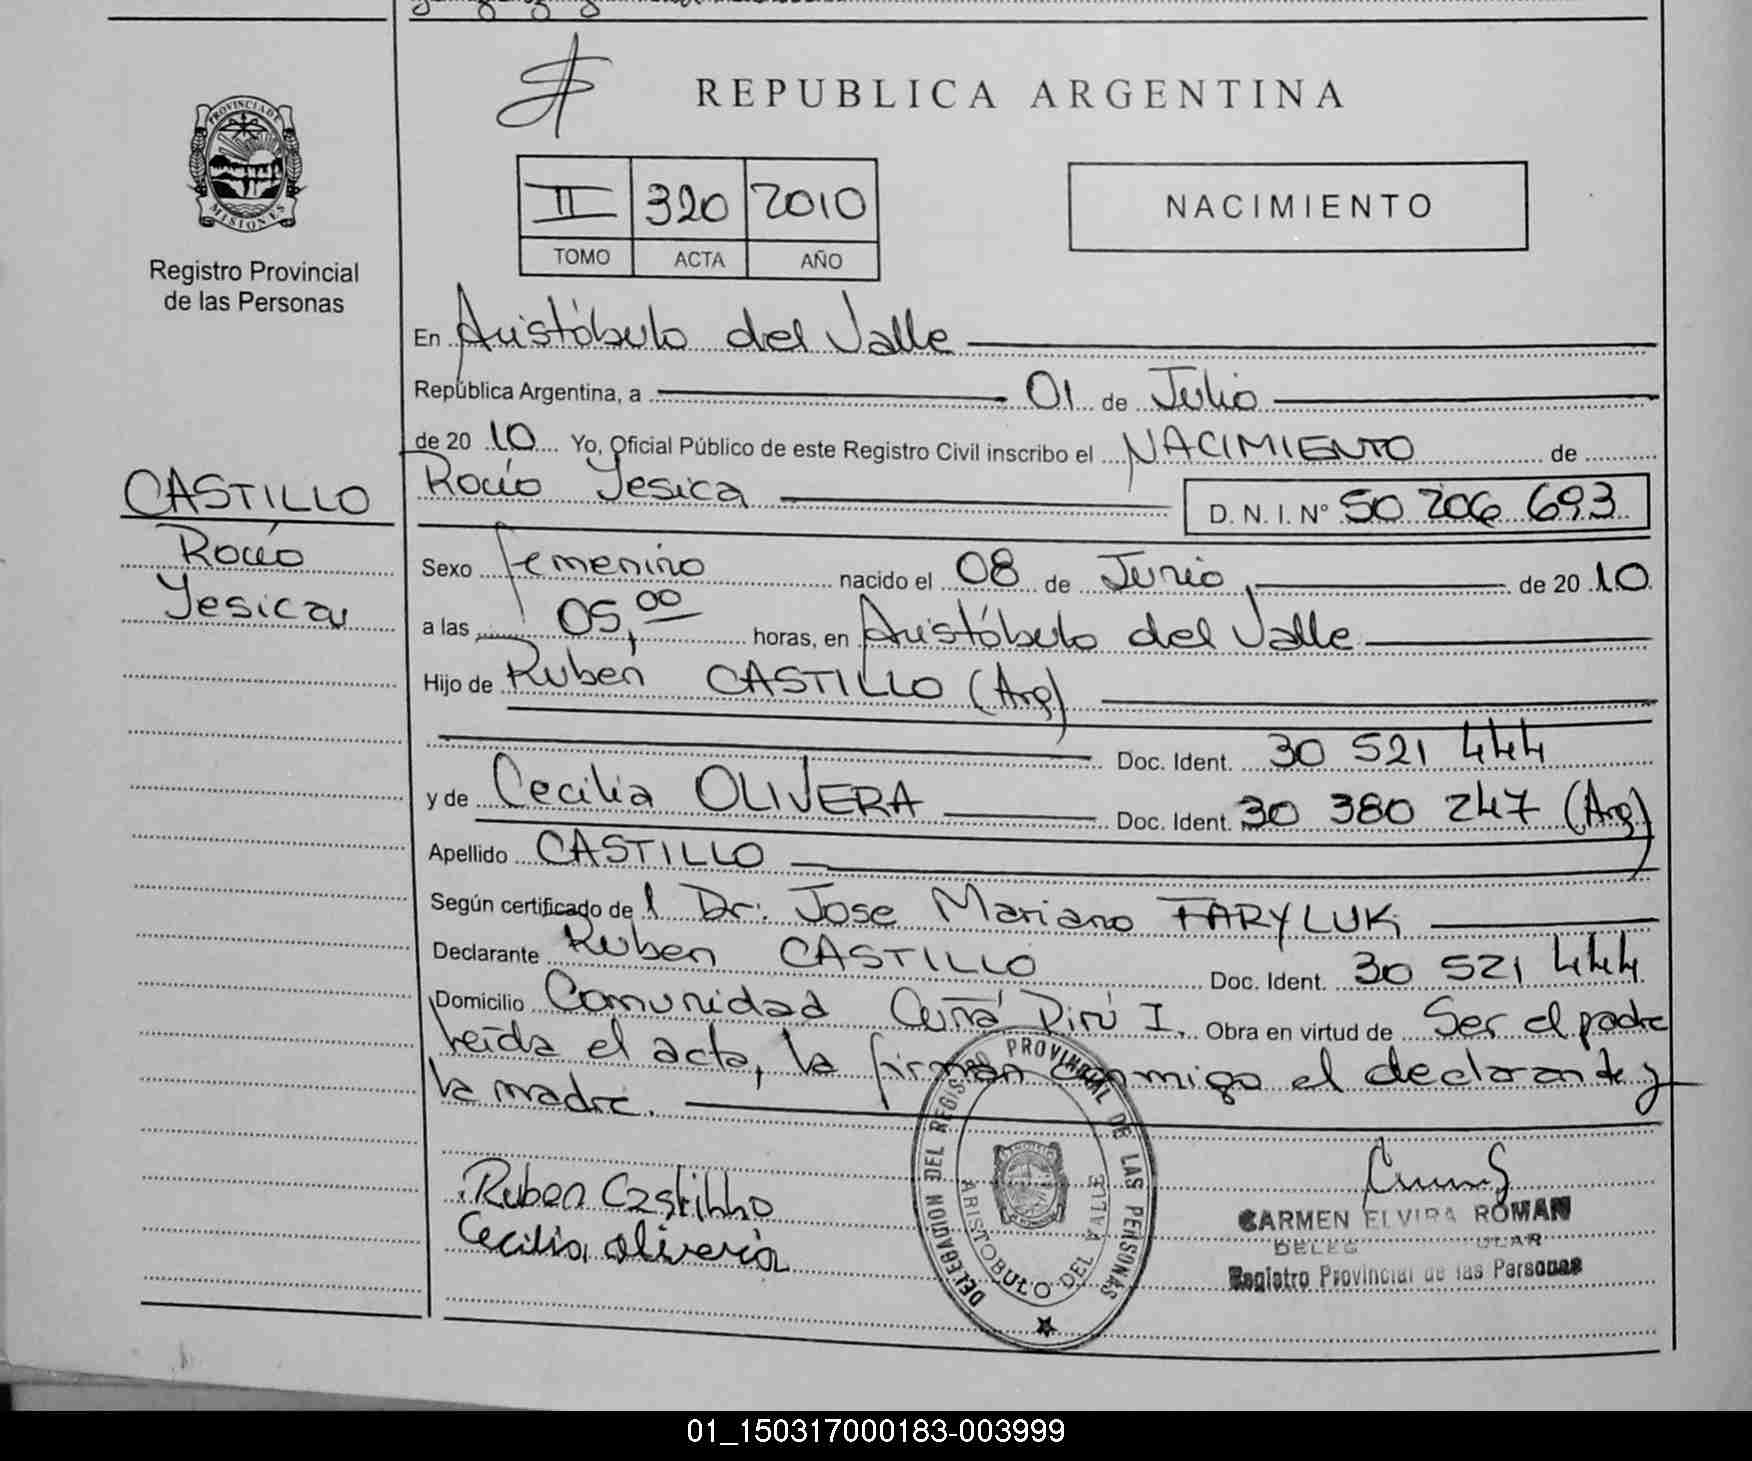 REPUBLICA ARGENTINA
PROVINCIA DE
MISIONES
Registro Provincial
de las Personas
II 320 2010
TOMO ACTA AÑO
NACIMIENTO
En Aristóbulo del Valle
República Argentina, a 01 de Julio
de 20 10 Yo, Oficial Público de este Registro Civil inscribo el NACIMIENTO de
Rocío Yesica D. N. I. N° 50 206 693
CASTILLO
Rocío
Yesica
Sexo femenino nacido el 08 de Junio de 20 10
a las 05,00 horas, en Aristóbulo del Valle
Hijo de Ruben CASTILLO (Arg)
Doc. Ident. 30 521 444
y de Cecilia OLIVERA Doc. Ident. 30 380 247 (Arg)
Apellido CASTILLO
Según certificado de l Dr. Jose Mariano FARYLUK
Declarante Ruben CASTILLO Doc. Ident. 30 521 444
Domicilio Comunidad Cuñá Pirú I. Obra en virtud de Ser el padre
leída el acta, la firman conmigo el declarante y
la madre.
Ruben Castillo
Cecilia olivera
DELEGACION DEL REGISTRO PROVINCIAL DE LAS PERSONAS
ARISTOBULO DEL VALLE
CARMEN ELVIRA ROMAN
Registro Provincial de las Personas
01_150317000183-003999